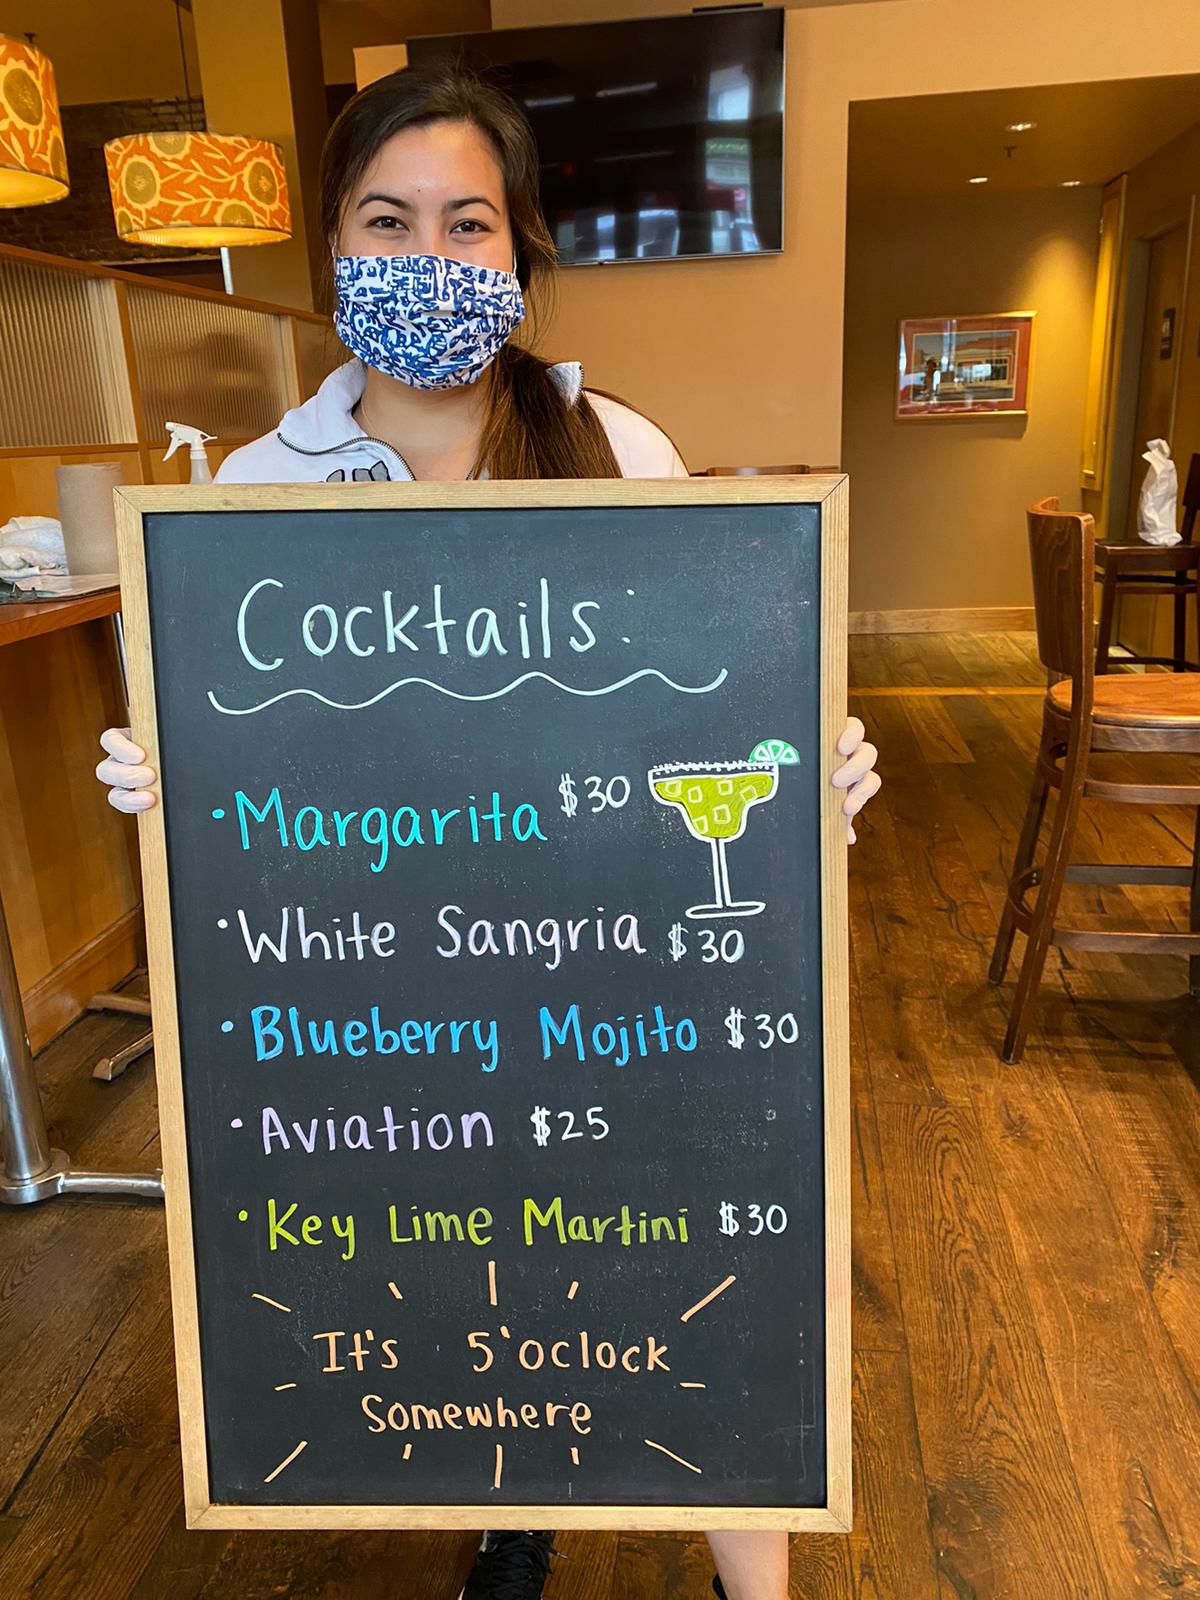 Cocktails:
• Margarita $30
• White Sangria $30
• Blueberry Mojito $30
• Aviation $25
• Key Lime Martini $30
It's 5'oclock
Somewhere